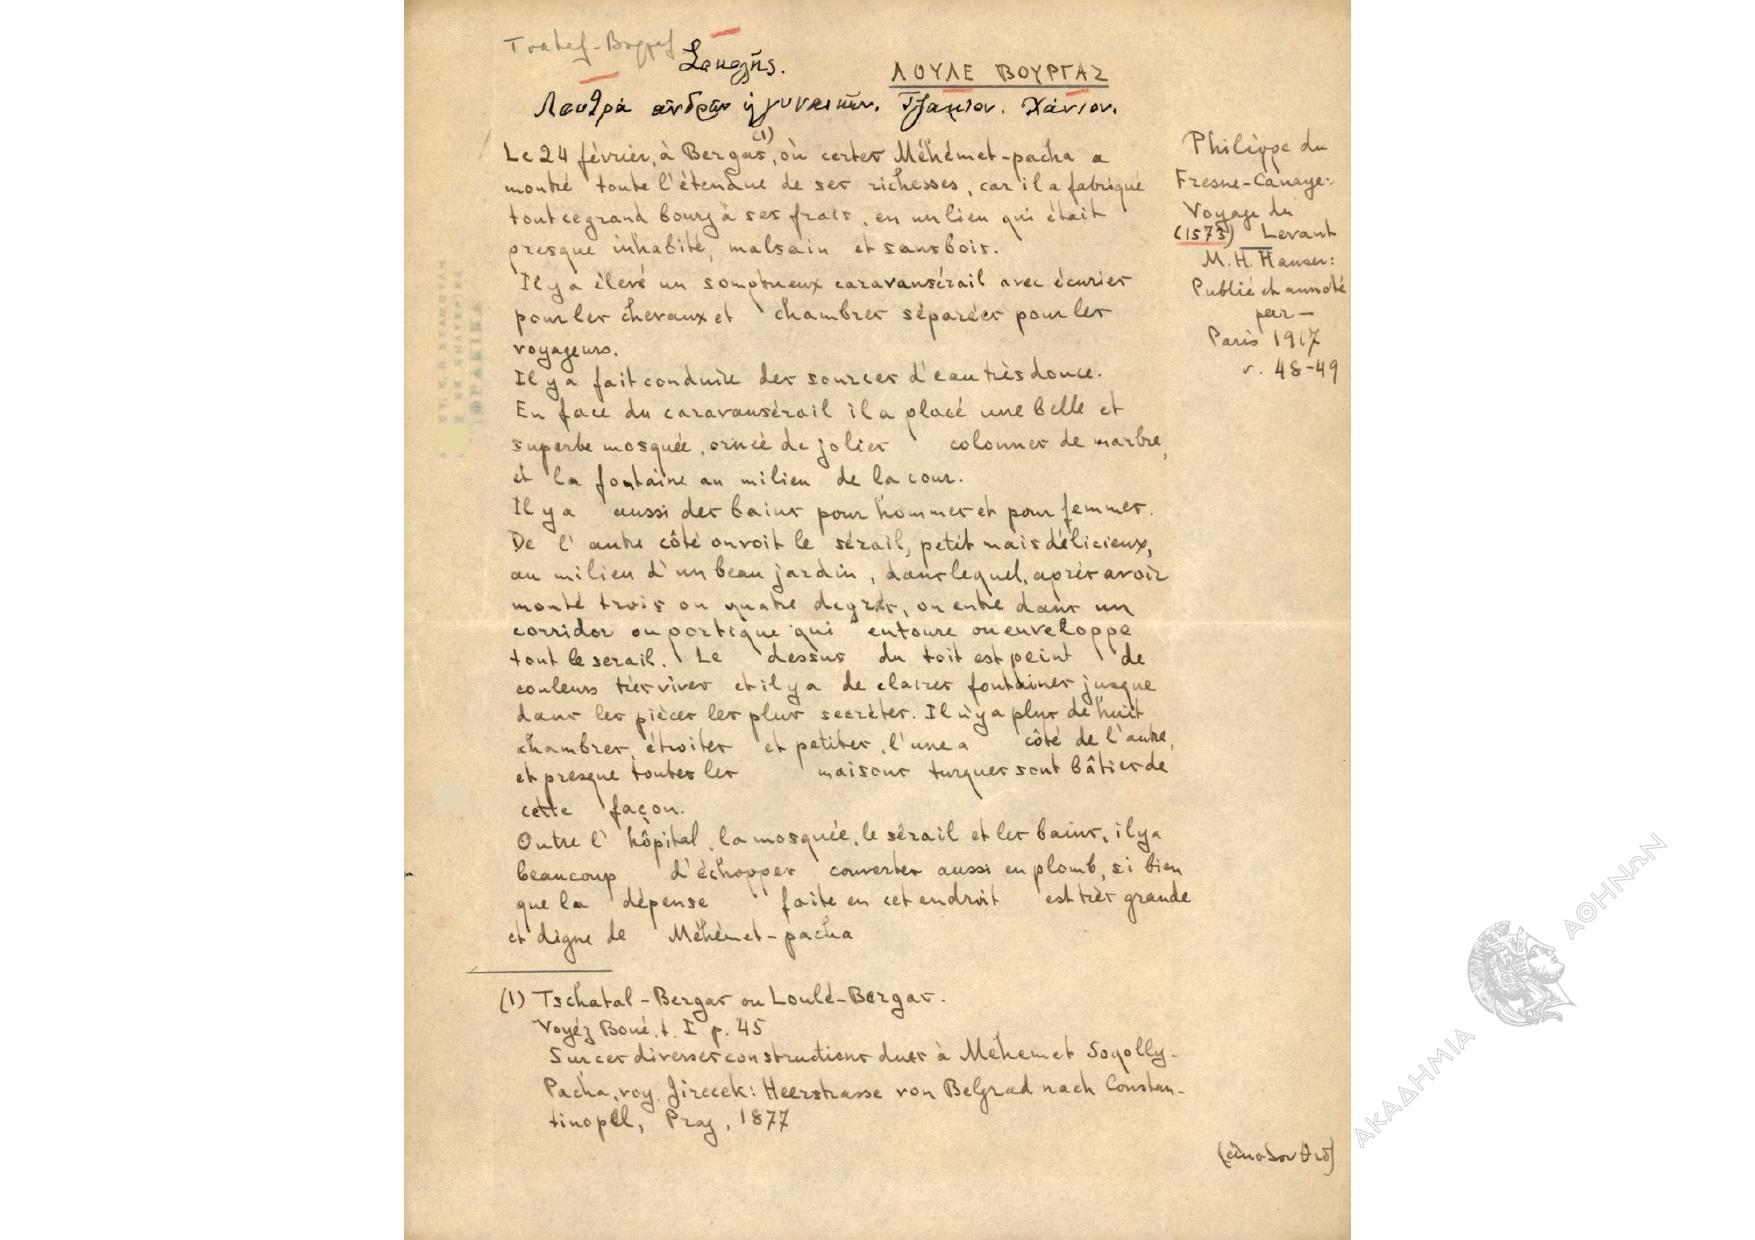 Τσατάλ-Βοργάς
Σοκολλής.
ΛΟΥΛΕ ΒΟΥΡΓΑΣ
Λουτρά ανδρών ή γυναικών. Τζαμίον. Χάνιον.
Le 24 février, à Bergas(1), où certes Méhémet-pacha a
montré toute l'étendue de ses richesses, car il a fabriqué
tout ce grand bourg à ses frais, en un lieu qui était
presque inhabité, malsain et sans bois.
Il y a élevé un somptueux caravansérail avec écuries
pour les chevaux et chambres séparées pour les
voyageurs.
Il y a fait conduire des sources d'eau très douce.
En face du caravansérail il a placé une belle et
superbe mosquée, ornée de jolies colonnes de marbre,
et la fontaine au milieu de la cour.
Il y a aussi des bains pour hommes et pour femmes.
De l'autre côté on voit le sérail, petit mais délicieux,
au milieu d'un beau jardin, dans lequel, après avoir
monté trois ou quatre degrés, on entre dans un
corridor ou portique qui entoure ou enveloppe
tout le serail. Le dessus du toit est peint de
couleurs très vives et il y a de claires fontaines jusque
dans les pièces les plus secrètes. Il n'y a plus de huit
chambres, étroites et petites, l'une a côté de l'autre,
et presque toutes les maisons turques sont bâties de
cette façon.
Outre l'hôpital, la mosquée, le sérail et les bains, il y a
beaucoup d'échoppes couvertes aussi en plomb, si bien
que la dépense faite en cet endroit est très grande
et digne de Méhémet-pacha
(1) Tschatal-Bergas ou Loulé-Bergas.
Voyéz Boué, t. I p. 45
Sur ces diverses constructions dues à Méhemet Soqolly-
Pacha, voy. Jirecek: Heerstrasse von Belgrad nach Constan-
tinopel, Prag, 1877
Philippe du
Fresne-Canaye:
Voyage du
(1573) Levant
M. H. Hauser:
Publié et annoté
par—
Paris 1917
σ. 48-49
(ἀκολουθεῖ)
ΑΚΑΔΗΜΙΑ ΑΘΗΝΩΝ